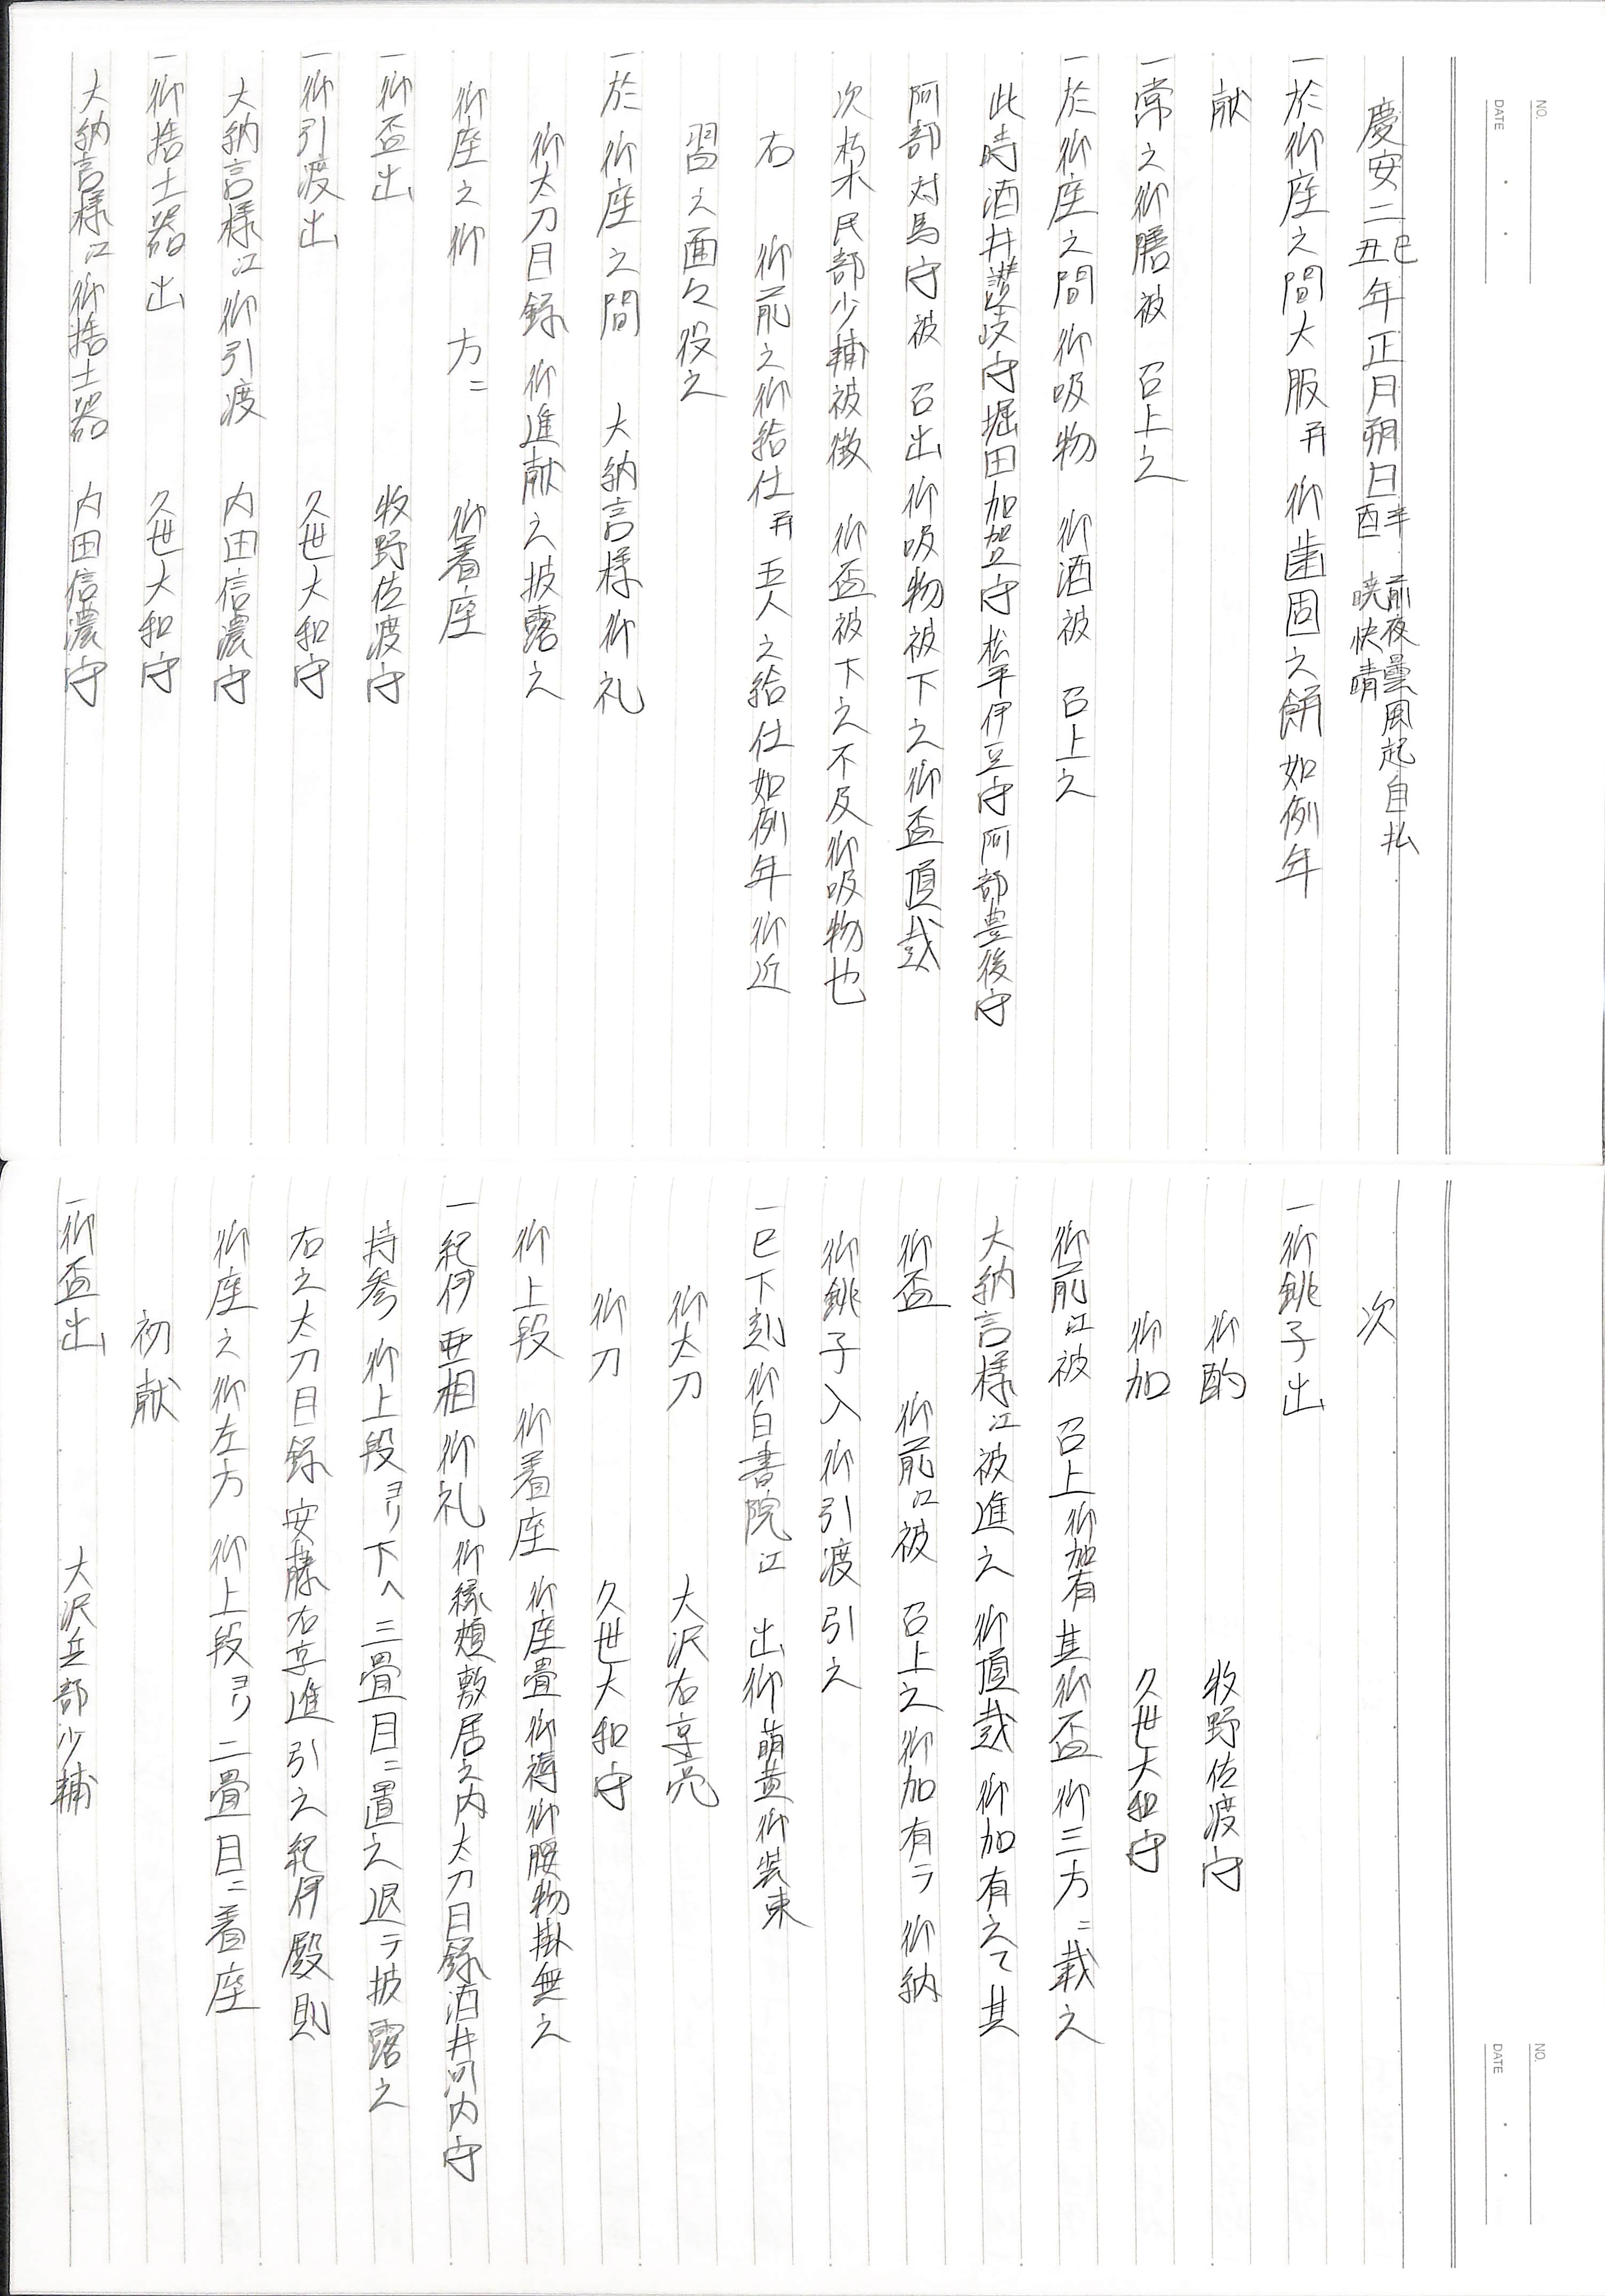 NO.
DATE
慶安二己丑年正月朔日辛酉 前夜曇風起自払暁快晴
一於御座之間大服幷御歯固之餅如例年
献
一常之御膳被 召上之
一於御座之間御吸物 御酒被 召上之
此時酒井讃岐守堀田加賀守松平伊豆守阿部豊後守
阿部対馬守被 召出御吸物被下之御盃頂戴
次朽木民部少輔被徴 御盃被下之不及御吸物也
右 御前之御給仕幷五人之給仕如例年御近
習之面々役之
一於御座之間 大納言様御礼
御太刀目録御進献之披露之
御座之御 方ニ 御着座
一御盃出 牧野佐渡守
一御引渡出 久世大和守
大納言様江御引渡 内田信濃守
一御捨土器出 久世大和守
大納言様江御捨土器 内田信濃守
NO.
DATE
次
一御銚子出
御酌 牧野佐渡守
御加 久世大和守
御前江被 召上御加有其御盃御三方ニ載之
大納言様江被進之御頂戴御加有之て其
御盃 御前江被 召上之御加有テ御納
御銚子入御引渡引之
一巳下刻御白書院江 出御萌黄御装束
御太刀 大沢右京亮
御刀 久世大和守
御上段 御着座御座畳御褥御腰物掛無之
一紀伊亜相御礼御縁頬敷居之内太刀目録酒井河内守
持参御上段ヨリ下ヘ三畳目ニ置之退テ披露之
右之太刀目録安藤右京進引之紀伊殿則
御座之御左方御上段ヨリ二畳目ニ着座
初献
一御盃出 大沢兵部少輔